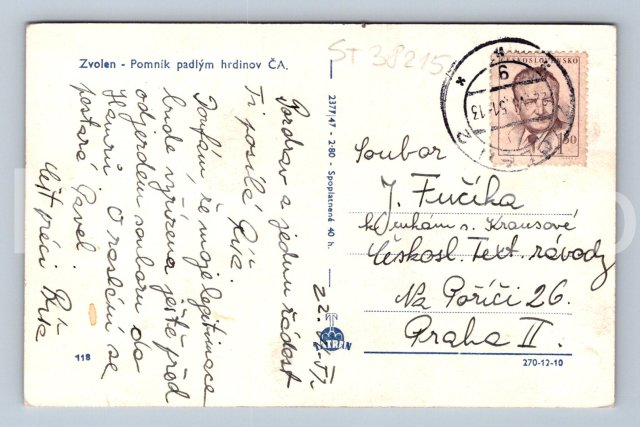 Zvolen - Pomník padlým hrdinov ČA.
ST 38215
ČESKOSLOVENSKO
Pozdrav a jednu žádost
Ti posílá Ríša.
Doufám, že moje legitimace
bude vyřízena ještě před
odjezdem souboru do
O zaslání se
postará Pavel.
Čest práci Ríša
237F/47 - 2-80 - Spoplatnené 40 h.
Soubor
J. Fučíka
k rukám s. Krausové
Českosl. Text. závody
Na Poříčí 26.
Praha II.
118
270-12-10